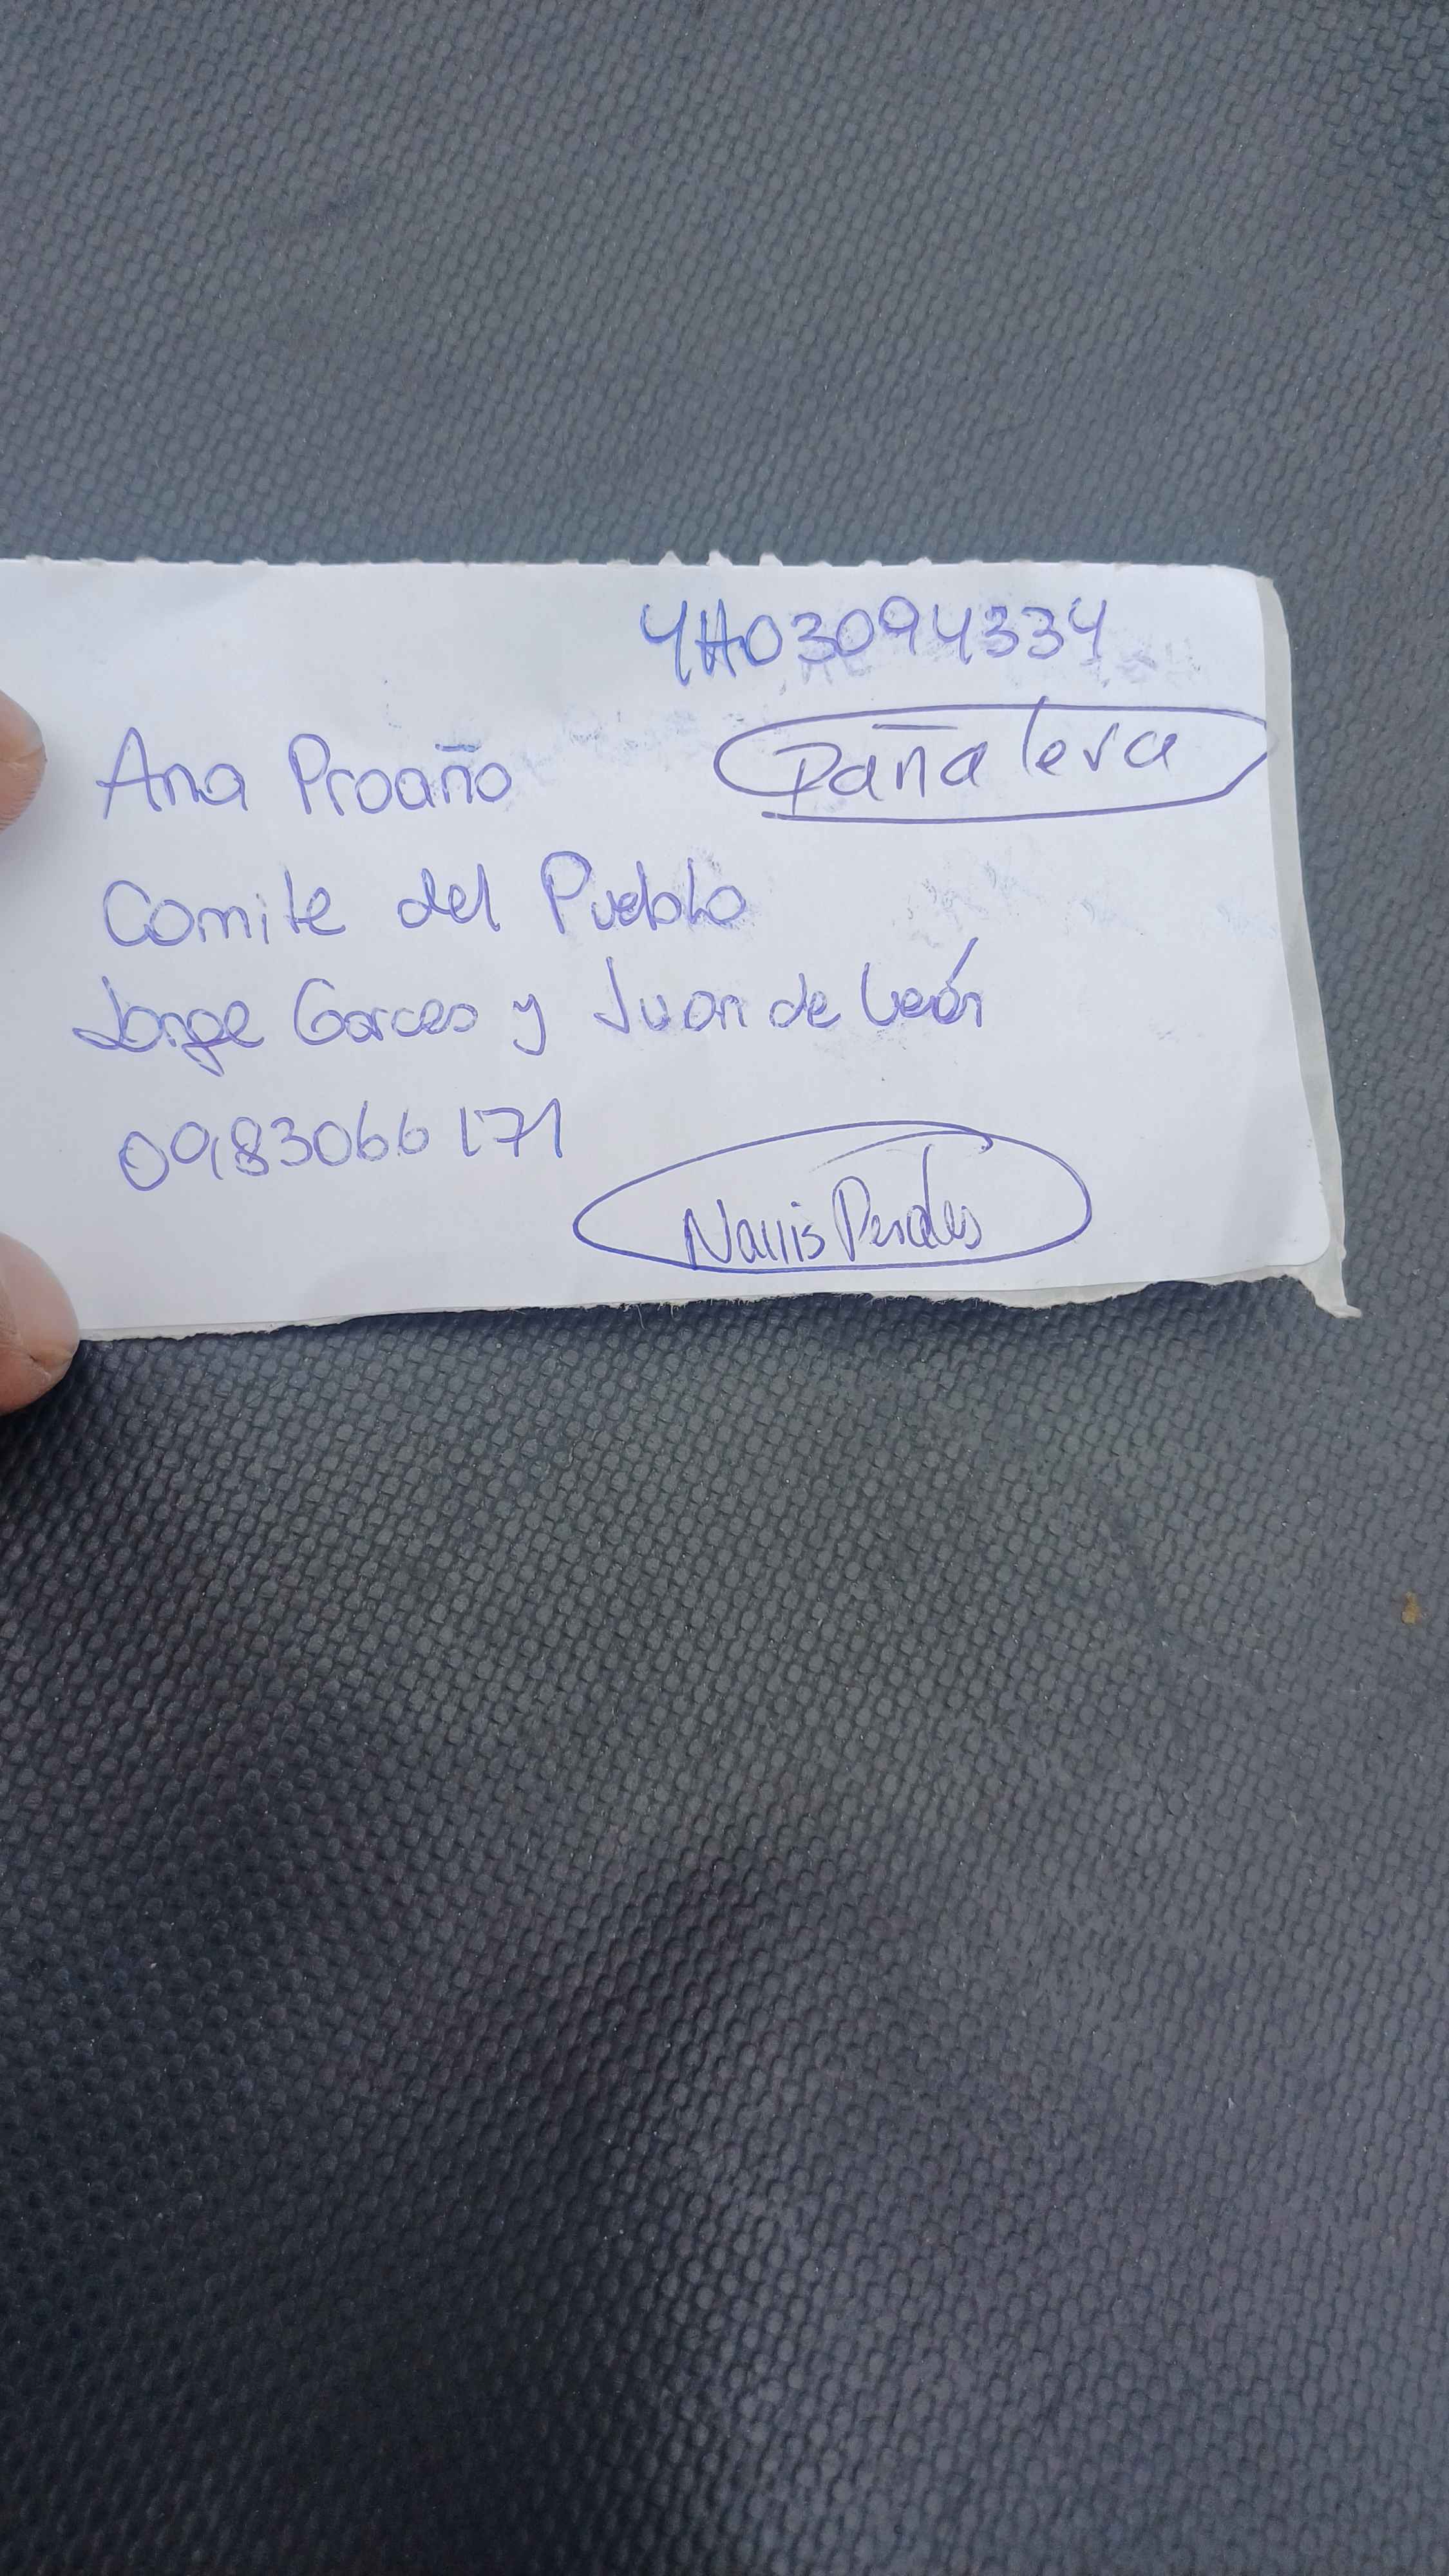 4H03094334
Ana Proaño
Pañalera
Comite del Pueblo
Jorge Garces y Juan de León
0983066171